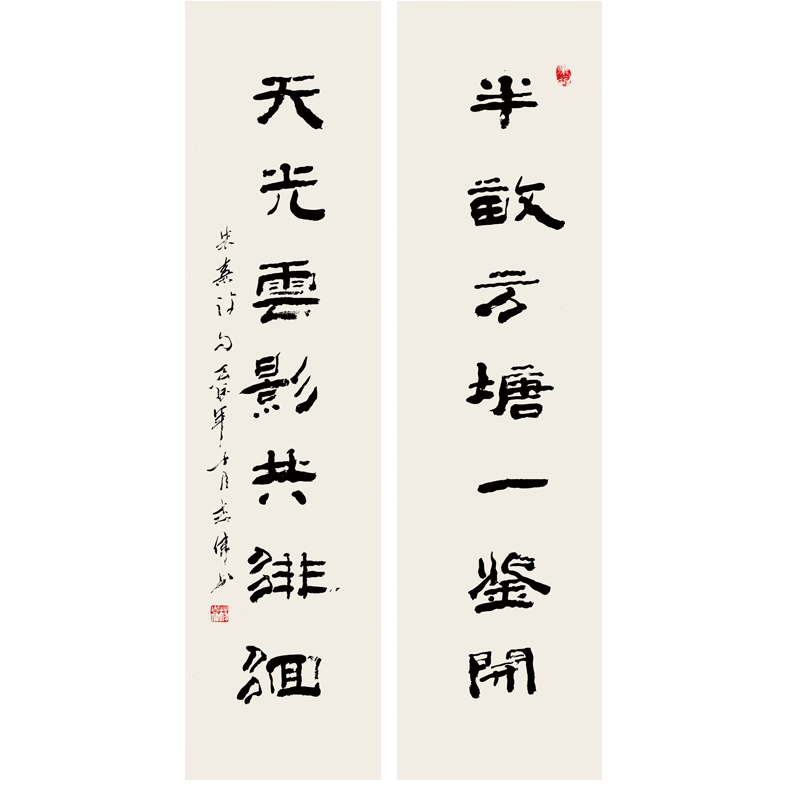 半畝方塘一鉴開
天光雲影共徘徊
朱熹诗句 年 月 书